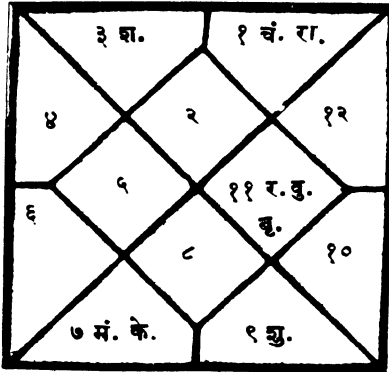 ३ श.
१ चं. रा.
४
२
१२
५
११ र. वु.
बृ.
६
८
१०
७ मं. के.
९ शु.